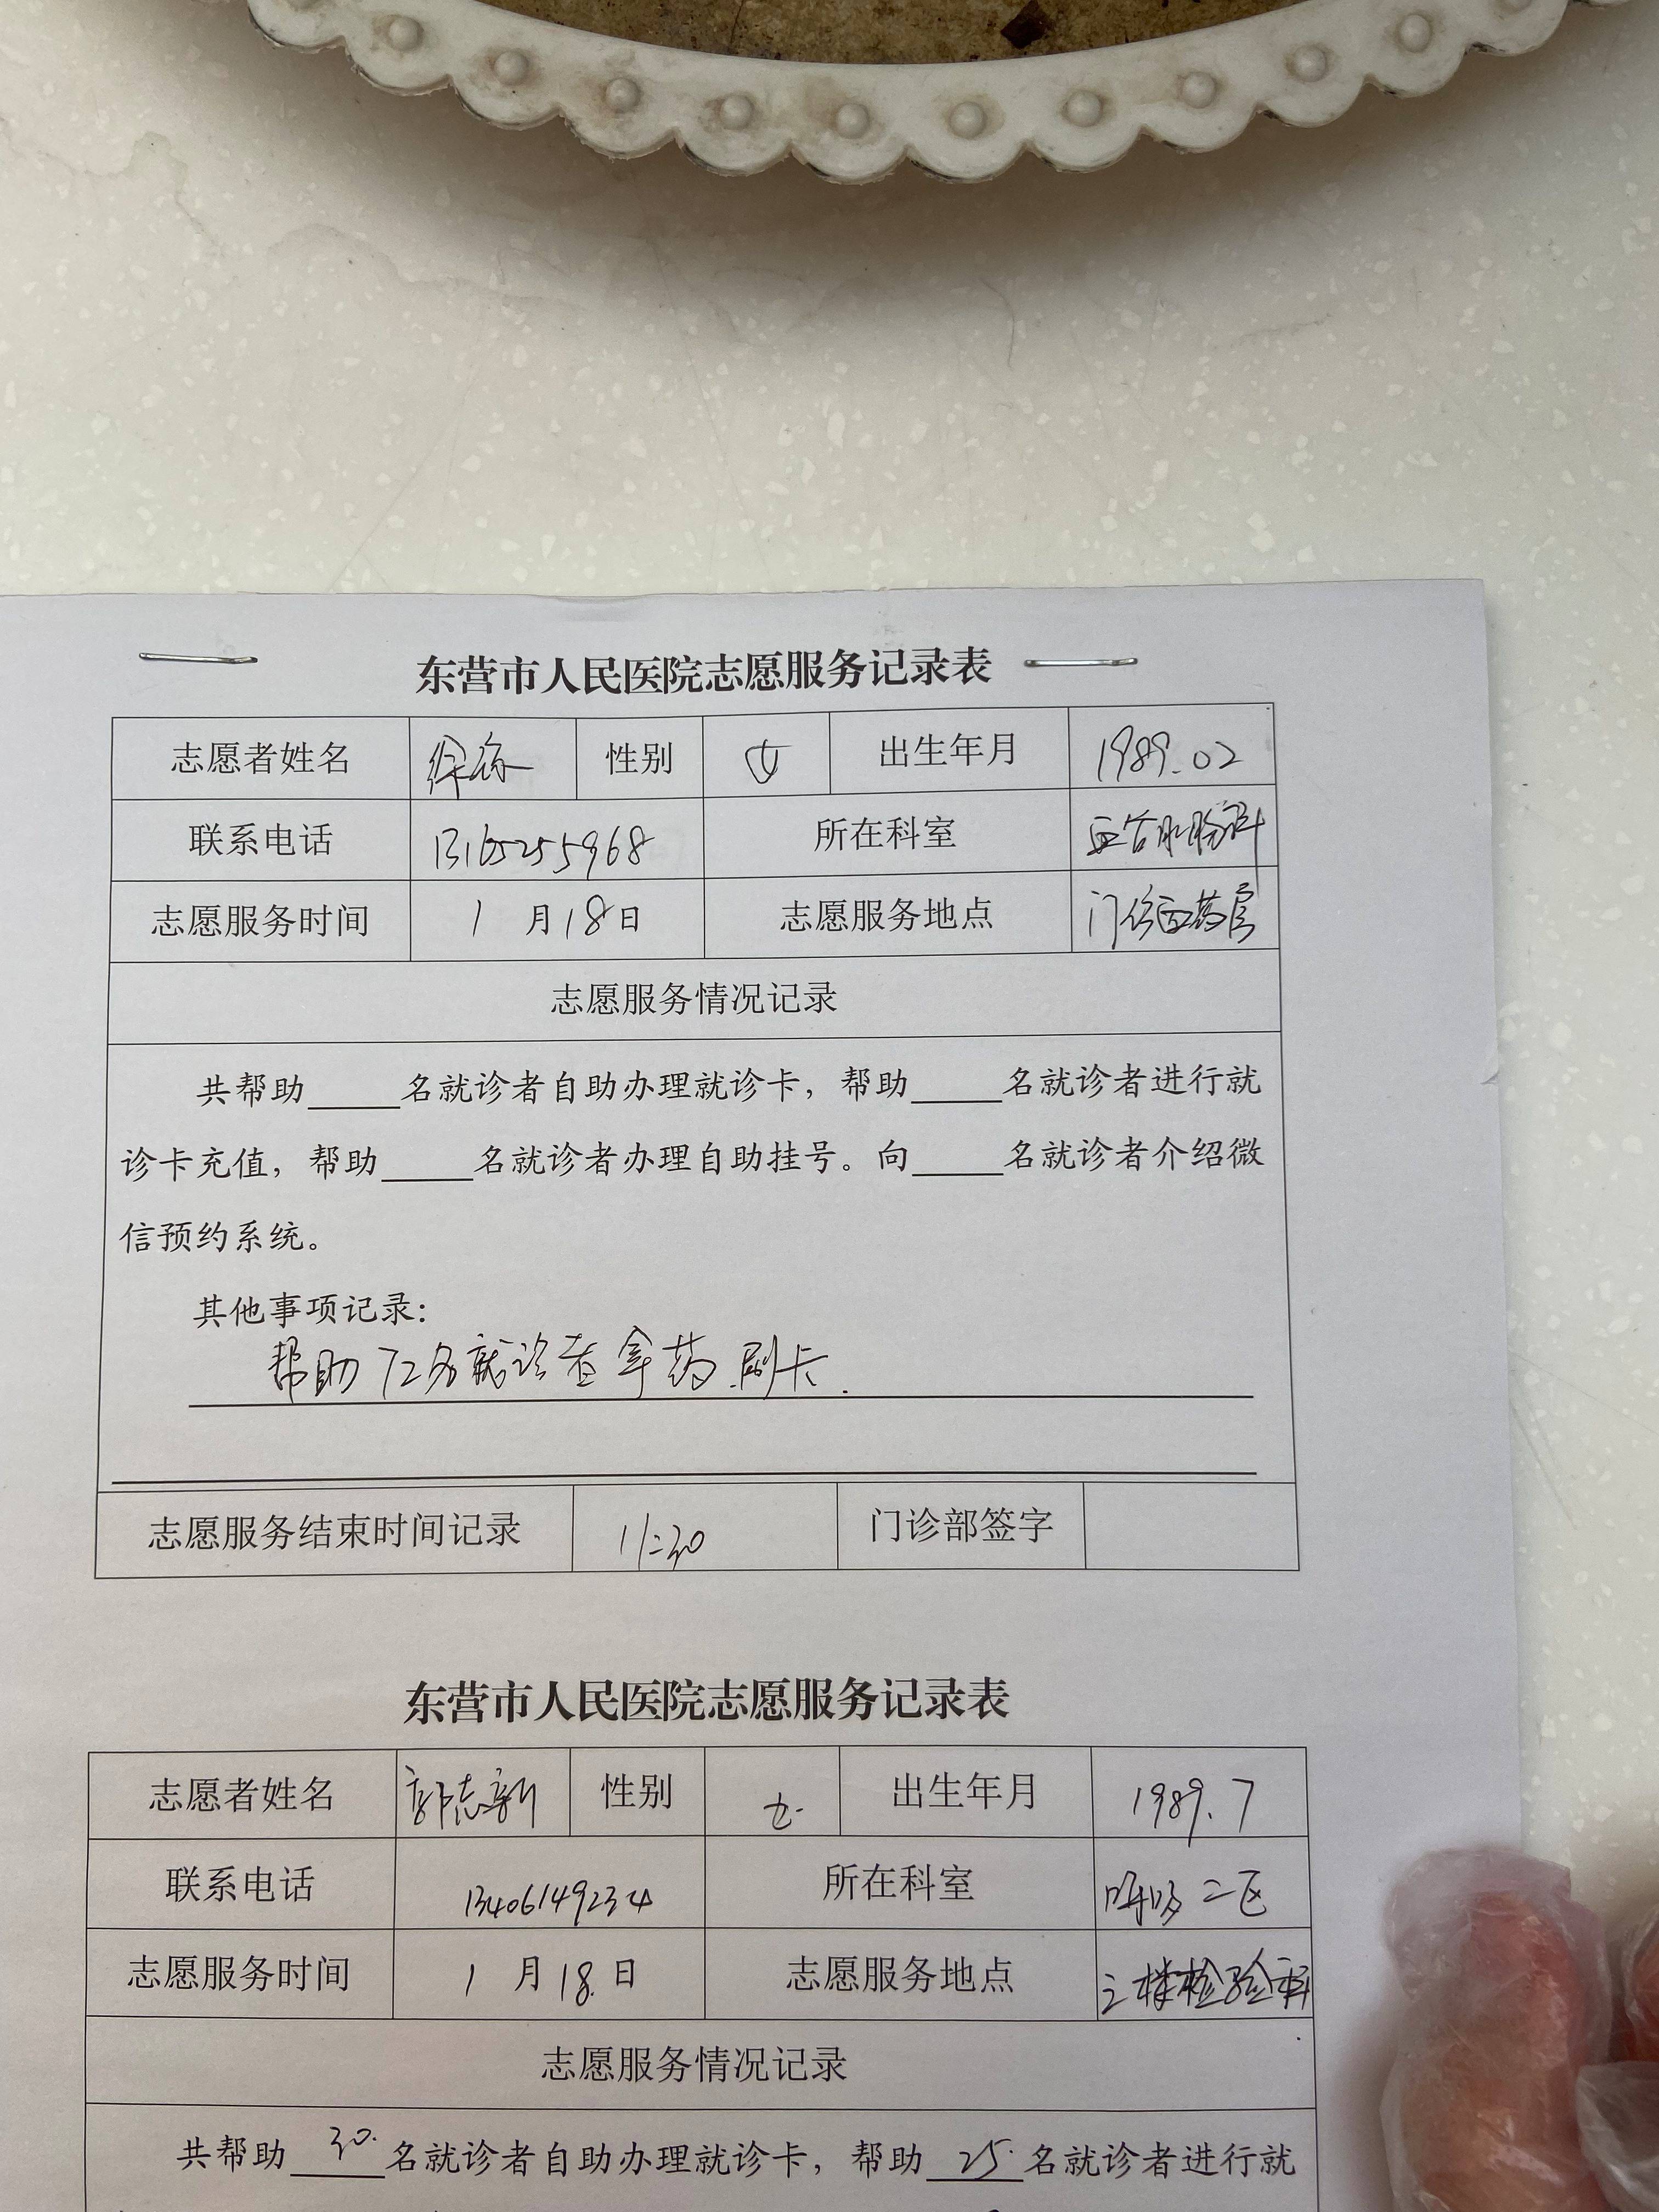 东营市人民医院志愿服务记录表
志愿者姓名 徐 性别 女 出生年月 1989.02
联系电话 13165255968 所在科室
志愿服务时间 1 月 18 日 志愿服务地点 门诊西药房
志愿服务情况记录
共帮助_____名就诊者自助办理就诊卡，帮助_____名就诊者进行就
诊卡充值，帮助_____名就诊者办理自助挂号。向_____名就诊者介绍微
信预约系统。
其他事项记录：
帮助72名就诊者拿药刷卡.
志愿服务结束时间记录 11:30 门诊部签字
东营市人民医院志愿服务记录表
志愿者姓名 郭志新 性别 女 出生年月 1989.7
联系电话 13406149234 所在科室 呼吸二区
志愿服务时间 1 月 18. 日 志愿服务地点 主楼检验科
志愿服务情况记录
共帮助 30. 名就诊者自助办理就诊卡，帮助 25. 名就诊者进行就